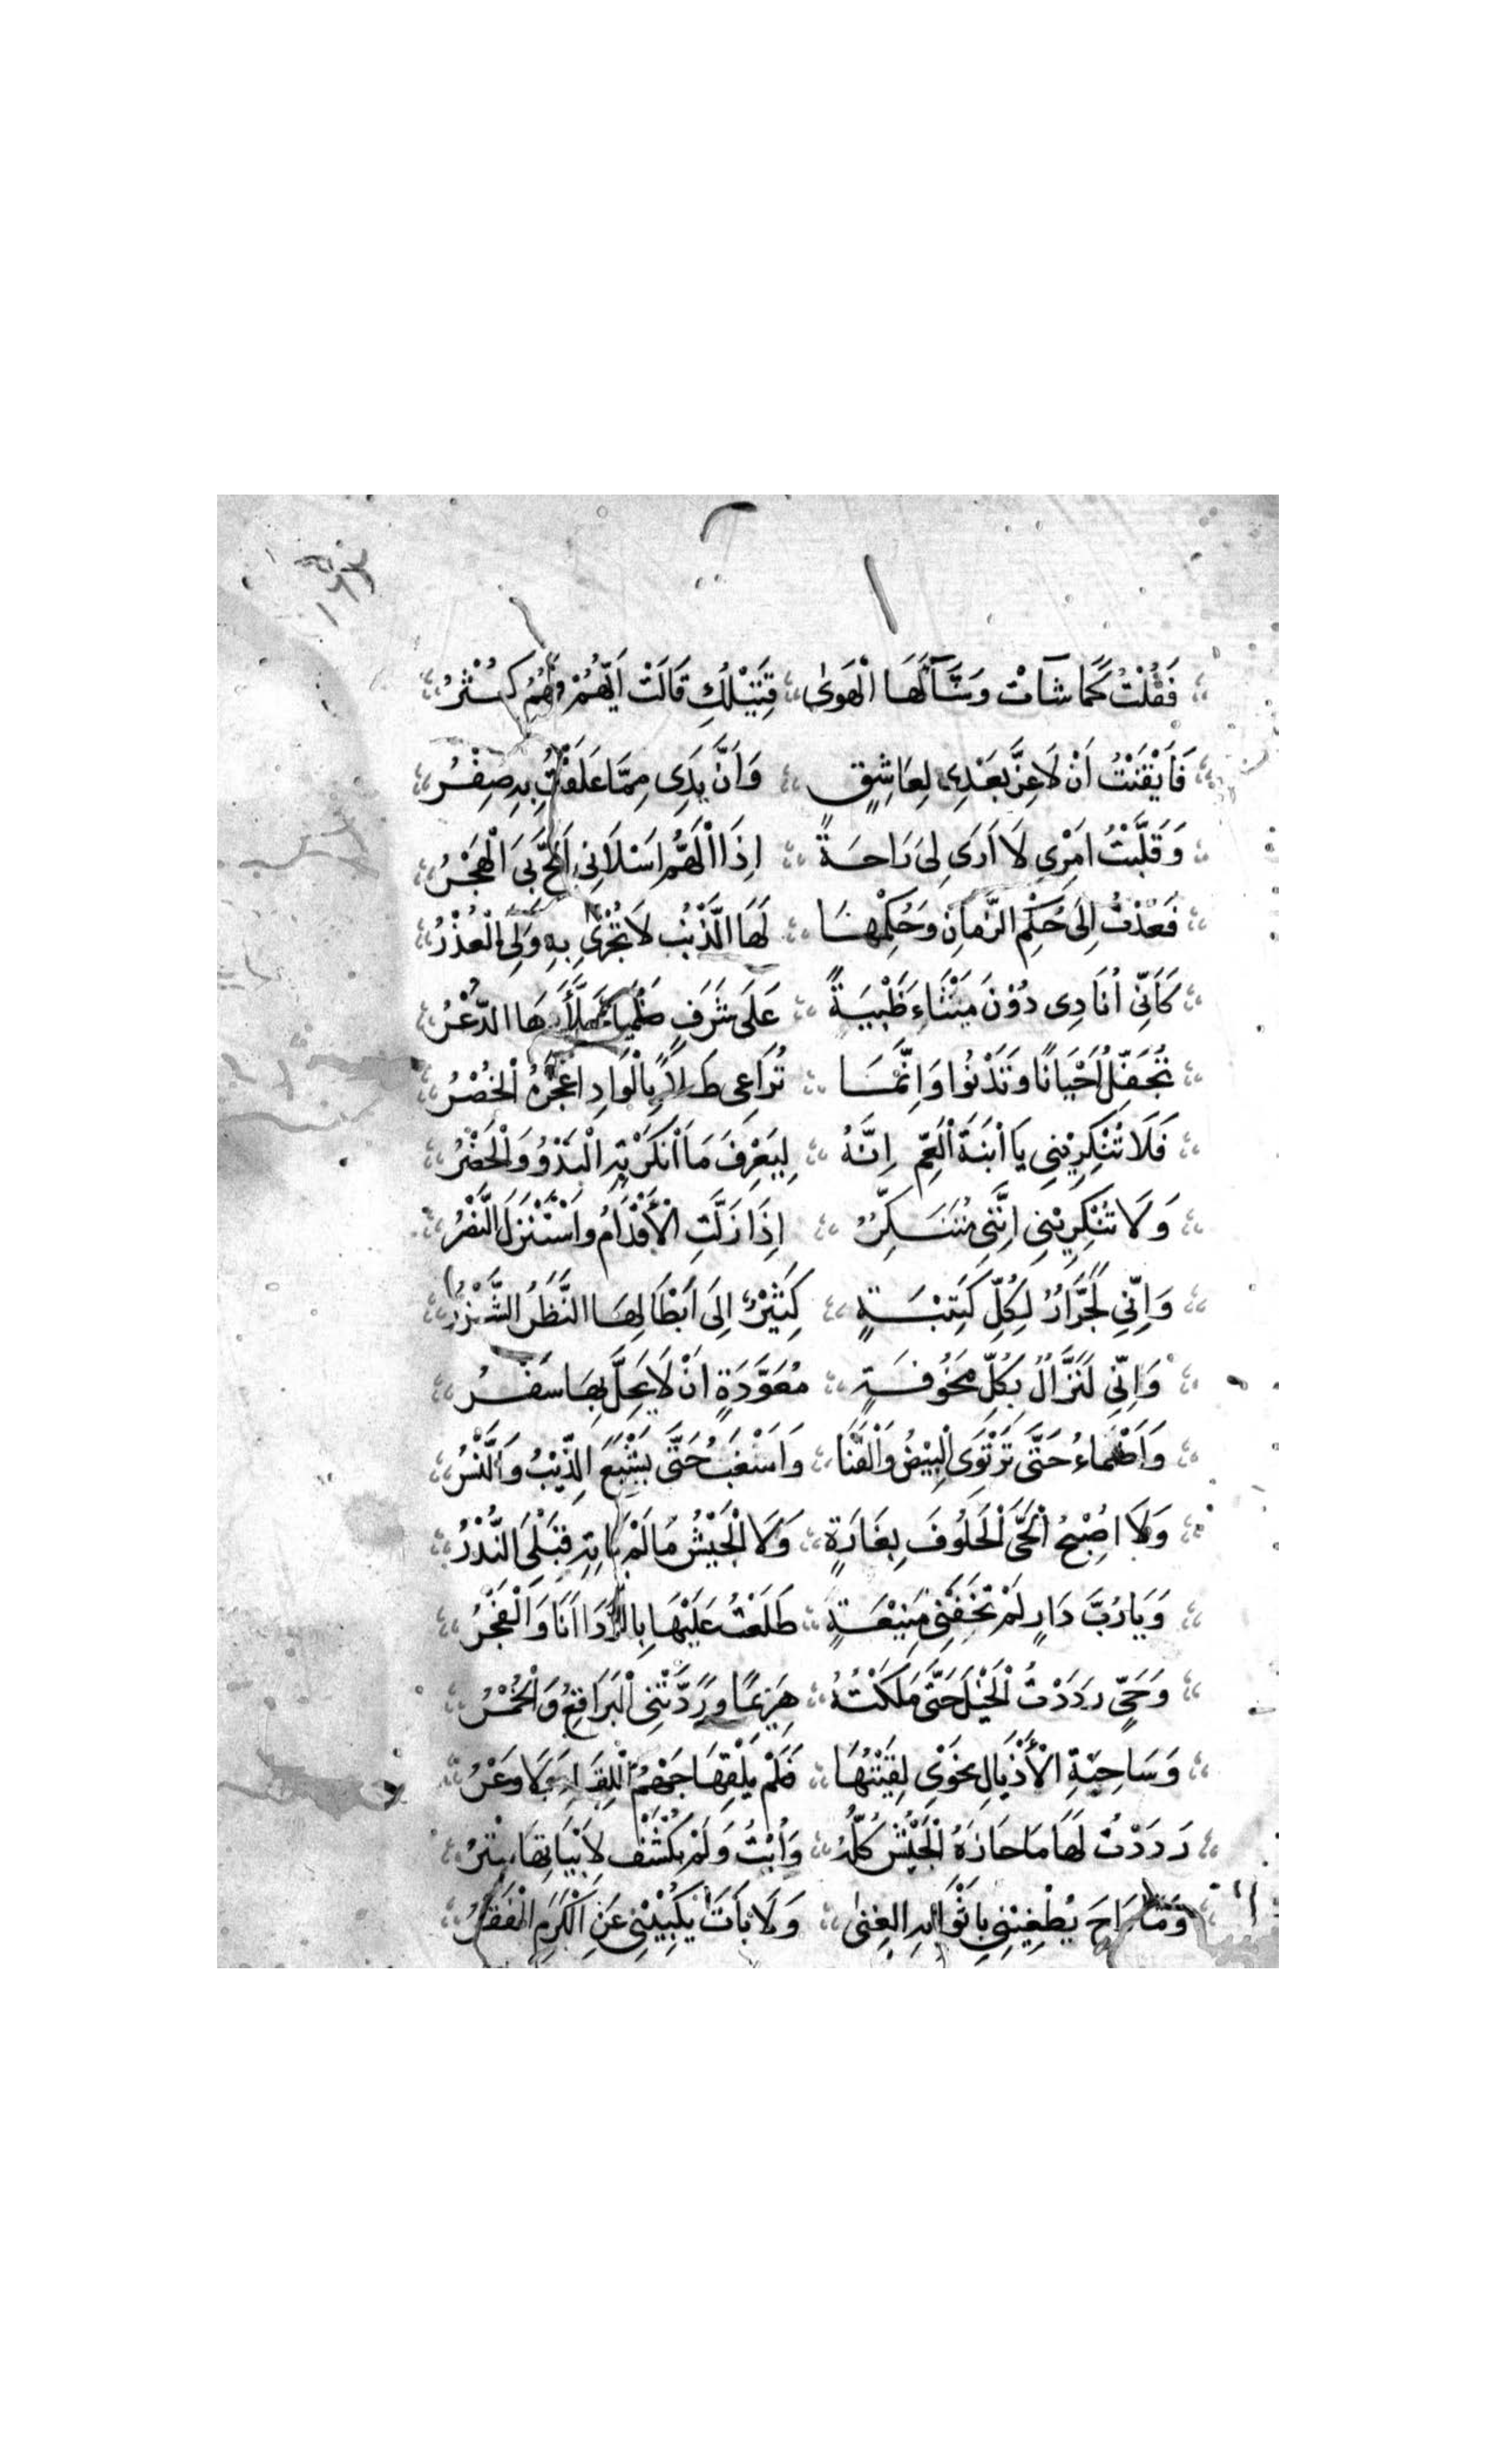 فَقُلْتُ كَمَا شَآءَتْ وَشَآءَ لَهَا الْهَوَىٰ قَتِيْلُكِ قَالَتْ اَيُّهُمْ وَهُمُ كُثْرُ
فَاَيْقَنْتُ اَنْ لَا عِزَّ بَعْدِي لِعَاشِقٍ وَاَنَّ يَدِى مِمَّا عَلَقْتُ بِهِ صِفْرُ
وَقَلَّبْتُ اَمْرِي لَا اَرَى لِىَ رَاحَةً اِذَا الْهَمُّ اَسْلَانِى اَلَحَّ بِىَ الْهَجْرُ
فَعُدْتُ اِلَى حُكْمِ الزَّمَانِ وَحُكْمِهَا لَهَا الذَّنْبُ لَا تُجْزَى بِهِ وَلِىَ الْعُذْرُ
كَاَنِّى اُنَادِى دُوْنَ مَيْثَاءَ ظَبْيَةً عَلَى شَرَفٍ ظَمْيَاءَ جَلَّلَهَا الذُّعْرُ
تُجَفِّلُ اَحْيَانًا وَتَدْنُوا وَاِنَّمَا تُرَاعِى طَلاً بِالْوَادِ اعْجَزَهُ الْحُضْرُ
فَلَا تُنْكِرِيْنِى يَا ابْنَةَ الْعَمِّ اِنَّهُ لِيَعْرِفَ مَا اَنْكَرْتِهِ الْبَدْوُ وَالْحَضْرُ
وَلَا تُنْكِرِيْنِى اِنَّنِى مُتَنَكِّرٌ اِذَا زَلَّتِ الْاَقْدَامُ وَاسْتُنْزِلَ النَّصْرُ
وَاِنِّي لَجَرَّارٌ لِكُلِّ كَتِيْبَةٍ كَثِيْرٌ اِلَى اَبْطَالِهَا النَّظَرُ الشَّزْرُ
وَاِنِّي لَنَزَّالٌ بِكُلِّ مَخُوْفَةٍ مُعَوَّدَةٍ اَنْ لَا يَحِلَّ بِهَا سَفْرُ
وَاَظْمَاءُ حَتَّى تَرْتَوِى الْبِيْضُ وَالْقَنَا وَاَسْغَبُ حَتَّى يَشْبَعَ الذِّيْبُ وَالنَّسْرُ
وَلَا اُصْبِحُ الْحَىَّ الْخَلُوفَ بِغَارَةٍ وَلَا الْجَيْشُ مَا لَمْ يَاتِهِ قَبْلِىَ النُّذْرُ
وَيَا رُبَّ دَارٍ لَمْ تَخَفْنِى مَنِيْعَةٍ طَلَعْتُ عَلَيْهَا بِالرَّدَا اَنَا وَالْفَجْرُ
وَحَيٍّ رَدَدْتُ الْخَيْلَ حَتَّى مَلَكْتُهُ هَزِيمًا وَرَدَّتْنِى الْبَرَاقِعُ وَالْخُمْرُ
وَسَاحِبَةِ الْاَذْيَالِ نَحْوِى لَقِيْتُهَا فَلَمْ يَلْقِهَا جَهْمُ اللِّقَاءِ وَلَا وَعْرُ
رَدَدْتُ لَهَا مَا حَازَهُ الْجَيْشُ كُلُّهُ وَاُبْتُ وَلَمْ يُكْشَفْ لِاَبْيَاتِهَا سِتْرُ
وَمَا رَاحَ يُطْغِيْنِى بِاَثْوَابِهِ الغِنىٰ وَلَا بَاتَ يَثْنِيْنِى عَنِ الْكَرَمِ الْفَقْرُ